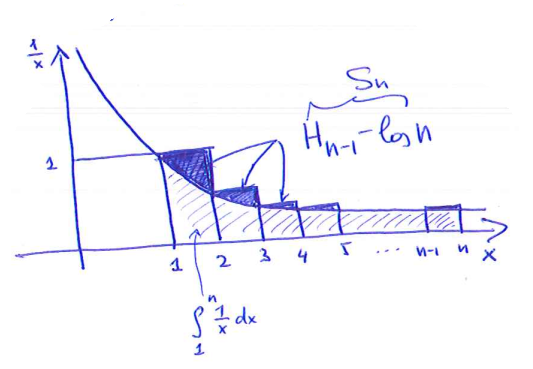 1/x
Sn
H_{n-1} - log n
1
1 2 3 4 5 ... n-1 n x
∫_1^n 1/x dx